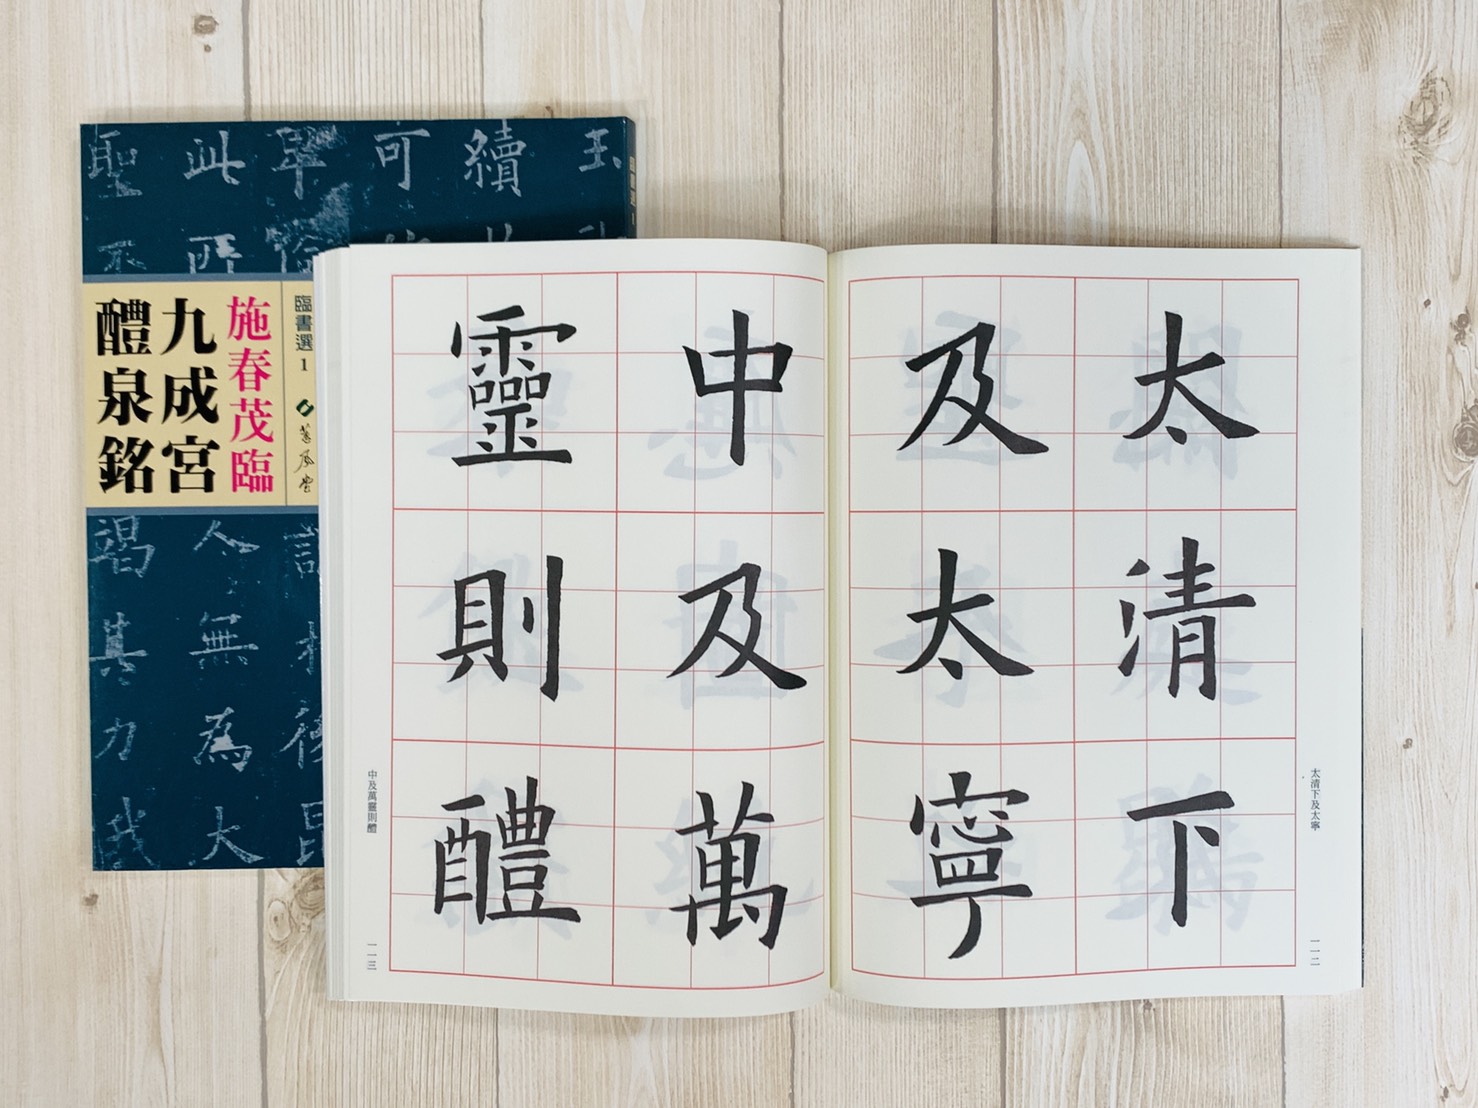 聖此早可續玉
施春茂臨
九成宮
醴泉銘
臨書選1
竭其力我
今無為大
太清下
及太寧
中及萬
靈則醴
太清下及太寧
一一二
中及萬靈則醴
一一三